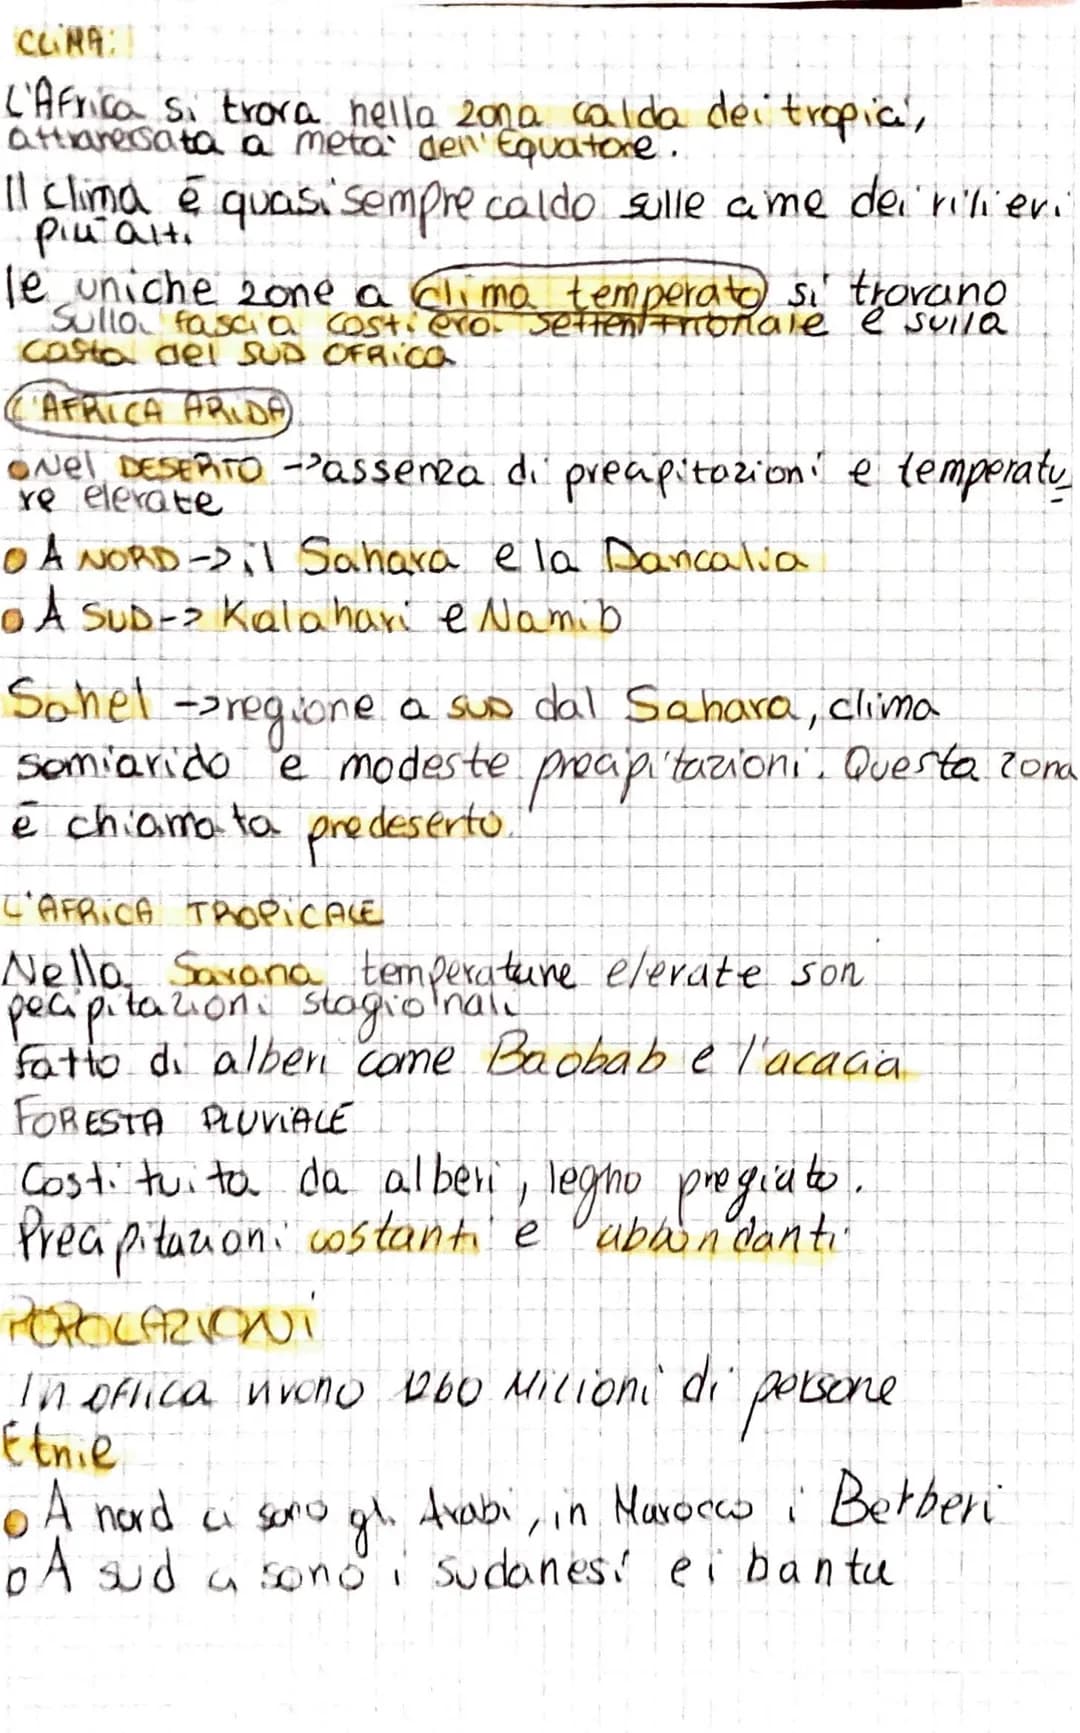 CLIMA:
L'Africa si trova nella zona calda dei tropici,
attraversata a metà dell'Equatore.
Il clima é quasi sempre caldo sulle cime dei rilievi
più alti
le uniche zone a clima temperato si trovano
sulla fascia costiera settentrionale e sulla
costa del SUD AFRICA
L'AFRICA ARIDA
Nel DESERTO -> assenza di precipitazioni e temperatu
re elevate
A NORD -> il Sahara e la Dancalia
A SUD -> Kalahari e Namib
Sahel -> regione a SUD dal Sahara, clima
semiarido e modeste precipitazioni. Questa zona
é chiamata predeserto.
L'AFRICA TROPICALE
Nella Savana temperature elevate son
pecipitazioni stagionali
fatto di alberi come Baobab e l'acacia
FORESTA PLUVIALE
Costituita da alberi, legno pregiato.
Precipitazioni costanti e abbondanti
POPOLAZIONI
In AFRICA vivono 1260 Milioni di persone
Etnie
A nord ci sono gli Arabi, in Marocco i Berberi
A sud ci sono i sudanesi e i bantu